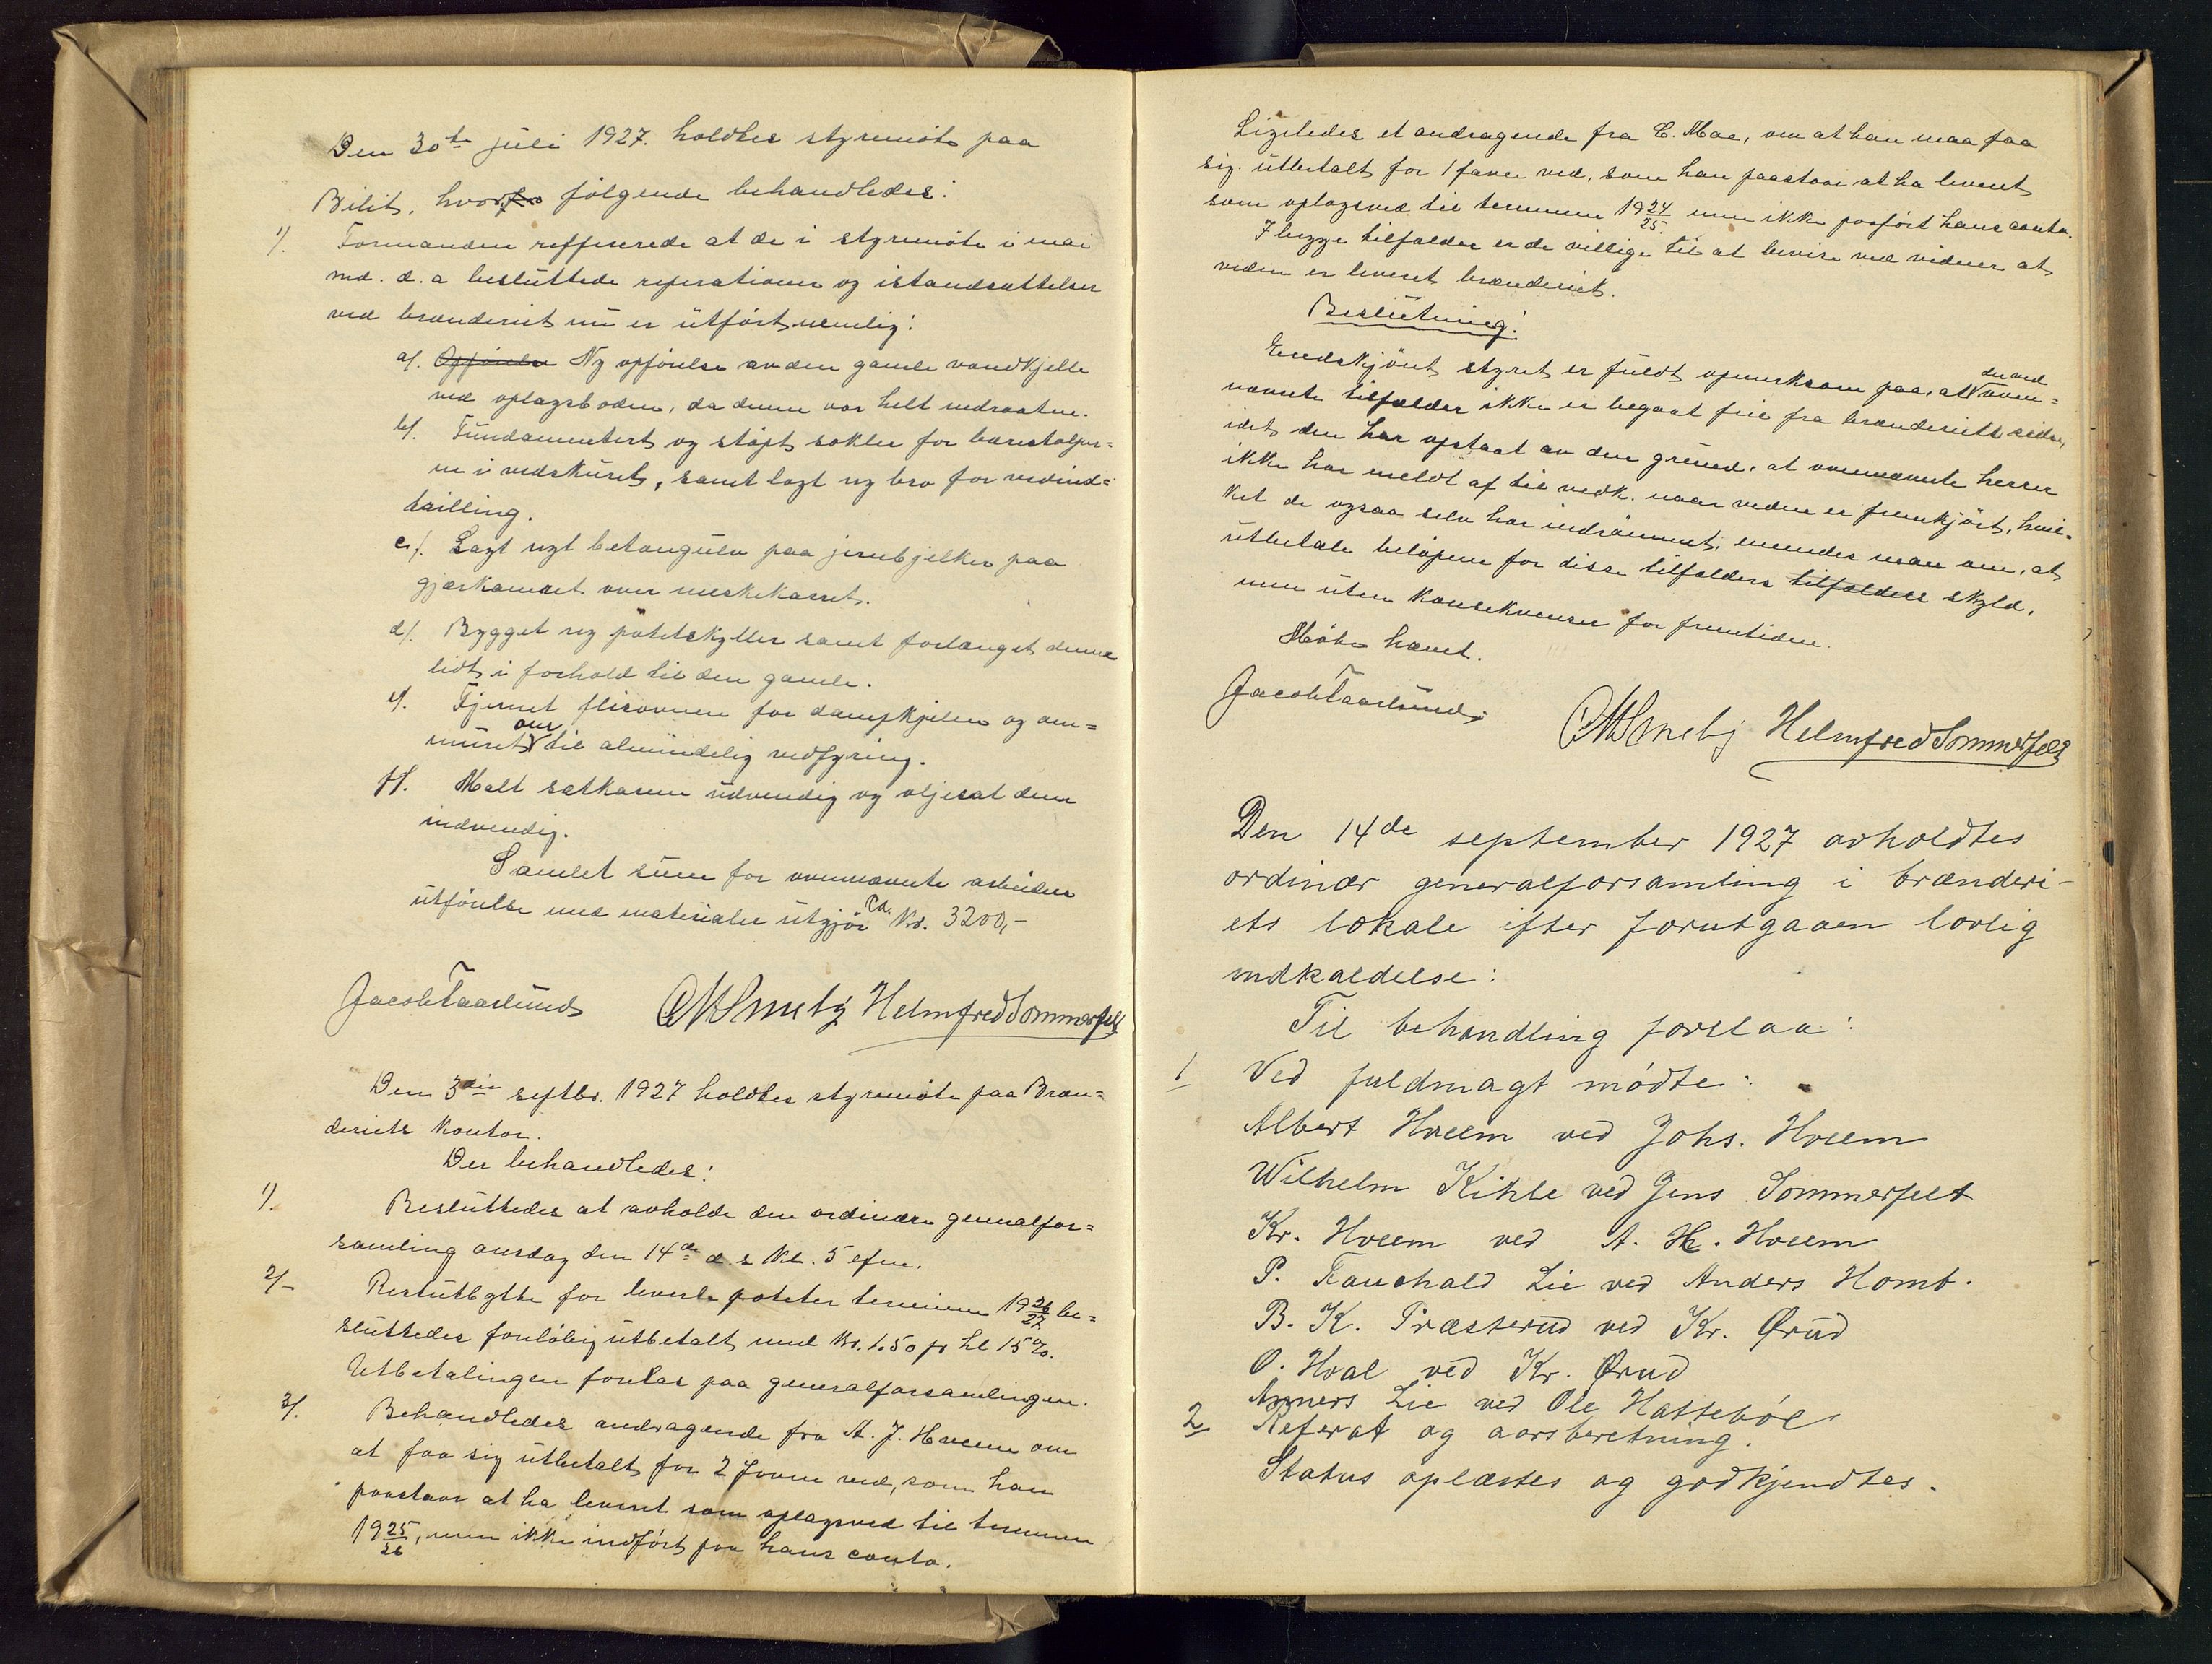 Den 30te juli 1927. holdtes styremöte paa
Bilit, hvor følgende behandledes:
1). Formanden reffererede at de i styremöte i mai
md. d. a besluttede reperationer og istandsættelser
ved brænderiet nu er utfört nemlig:
a). Opförelse Ny opförelse av den gamle vandkjelle
ved oplagsboden, da denne var helt nedraatne.
b). Fundamentert og stöpt sokler for bærestolper=
ne i vedskuret, samt lagt ny bro for vedind=
kjilling.
c). Lagt nyt betongulv paa jernbjelker paa
gjærkamret over meskekarret.
d). Bygget ny potetskyller samt forlænget denne
lidt i forhold til den gamle.
e). Fjernet flisovnen for dampkjelen og om=
muret ovn til almindelig vedfyring.
f). Malt satkarene udvendig og oljesat dem
indvendig.
Samlet sum for ovennævnte arbeiders
utförelse med materialer utgjör ca. Kr. 3200,-
Jacob Taaslund O M Smeby Helmfred Sommerfelt
Den 3die septbr. 1927 holdtes styremöte paa Bræn=
deriets kontor.
Der behandledes:
1). Besluttedes at avholde den ordinære generalfor=
samling onsdag den 14de d. s kl. 5 efm.
2). Restutbytte for leverte poteter terminen 19 26/27 be=
sluttedes foreløbig utbetalt med Kr. 1.50 pr hl 15%.
Utbetalingen foretas paa generalforsamlingen.
3). Behandledes andragende fra A. J. Hveem om
at faa sig utbetalt for 2 favne ved, som han
paastaar at ha leveret som oplagsved til terminen
19 25/26, men ikke indfört paa hans conto.
Ligeledes et andragende fra C. Moe, om at han maa faa
sig utbetalt for 1 favn ved, som han paastaar at ha leveret
som oplagsved til terminen 19 24/25. men ikke paafört hans conto.
I begge tilfælder er de villige til at bevise ved vidner at
veden er leveret brænderiet.
Beslutning:
Endskjönt styret er fuldt opmerksom paa, at der ved oven=
nævnte tilfælder ikke er begaat feil fra brænderiets side,
idet den har opstaat av den grund, at ovennævnte herrer
ikke har meldt af til vedk. naar veden er fremkjört, hvil=
ket de ogsaa selv har indrömmet, enendes man om, at
utbetale belöpene for disse tilfælders tilfælders skyld,
men uten konsekvenser for fremtiden.
Möte hævet.
Jacob Taaslund O M Smeby Helmfred Sommerfelt
Den 14de september 1927 avholdtes
ordinær generalforsamling i brænderi-
ets lokale efter forutgaaen lovlig
indkaldelse:
Til behandling forelaa:
1 Ved fuldmagt mödte:
Albert Hveem ved Johs. Hveem
Wilhelm Kihle ved Jens Sommerfelt
Kr. Hveem ved A. H. Hveem
P. Fauchald Lie ved Anders Homb.
B. K. Præsterud ved Kr. Ørud
O. Hval ved Kr. Ørud
Anners Lie ved Ole Hatteböl
2 Referat og aarsberetning.
Status oplæstes og godkjendtes.